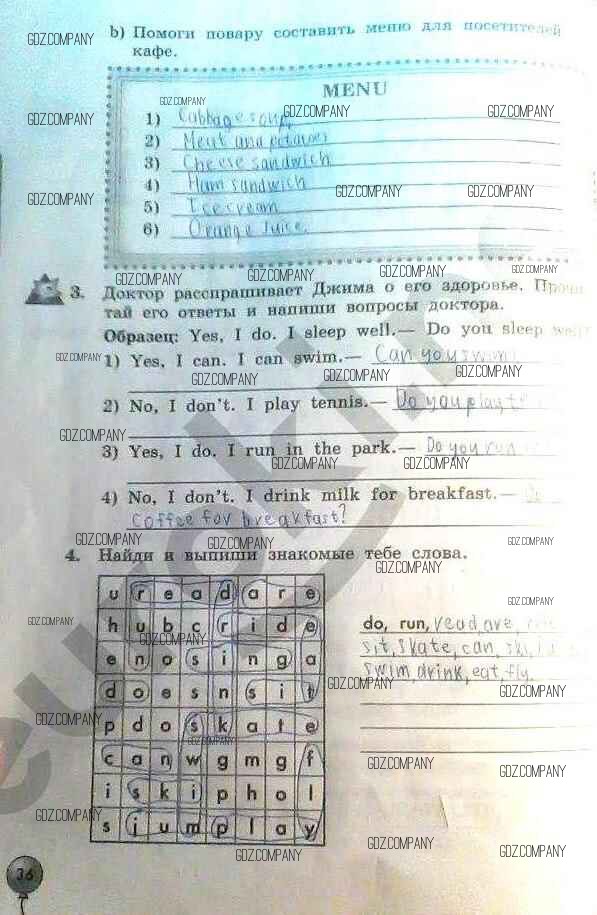 b) Помоги повару составить меню для посетителей
кафе.
MENU
1) Cabbage soup
2) Meat and potatoes
3) Cheese sandwich
4) Ham sandwich
5) Icecream
6) Orange Juice.
3. Доктор расспрашивает Джима о его здоровье. Прочи-
тай его ответы и напиши вопросы доктора.
Образец: Yes, I do. I sleep well.— Do you sleep well?
1) Yes, I can. I can swim.— Can you swim?
2) No, I don't. I play tennis.— Do you play
3) Yes, I do. I run in the park.— Do you run
4) No, I don't. I drink milk for breakfast.—
coffee for breakfast?
4. Найди и выпиши знакомые тебе слова.
u r e a d a r e
h u b c r i d e
e n o s i n g a
d o e s n s i t
p d o s k a t e
c a n w g m g f
i s k i p h o l
s j u m p l a y
do, run, read, are,
sit, skate, can, ski,
swim, drink, eat, fly.
36
GDZ.COMPANY
euroki.net